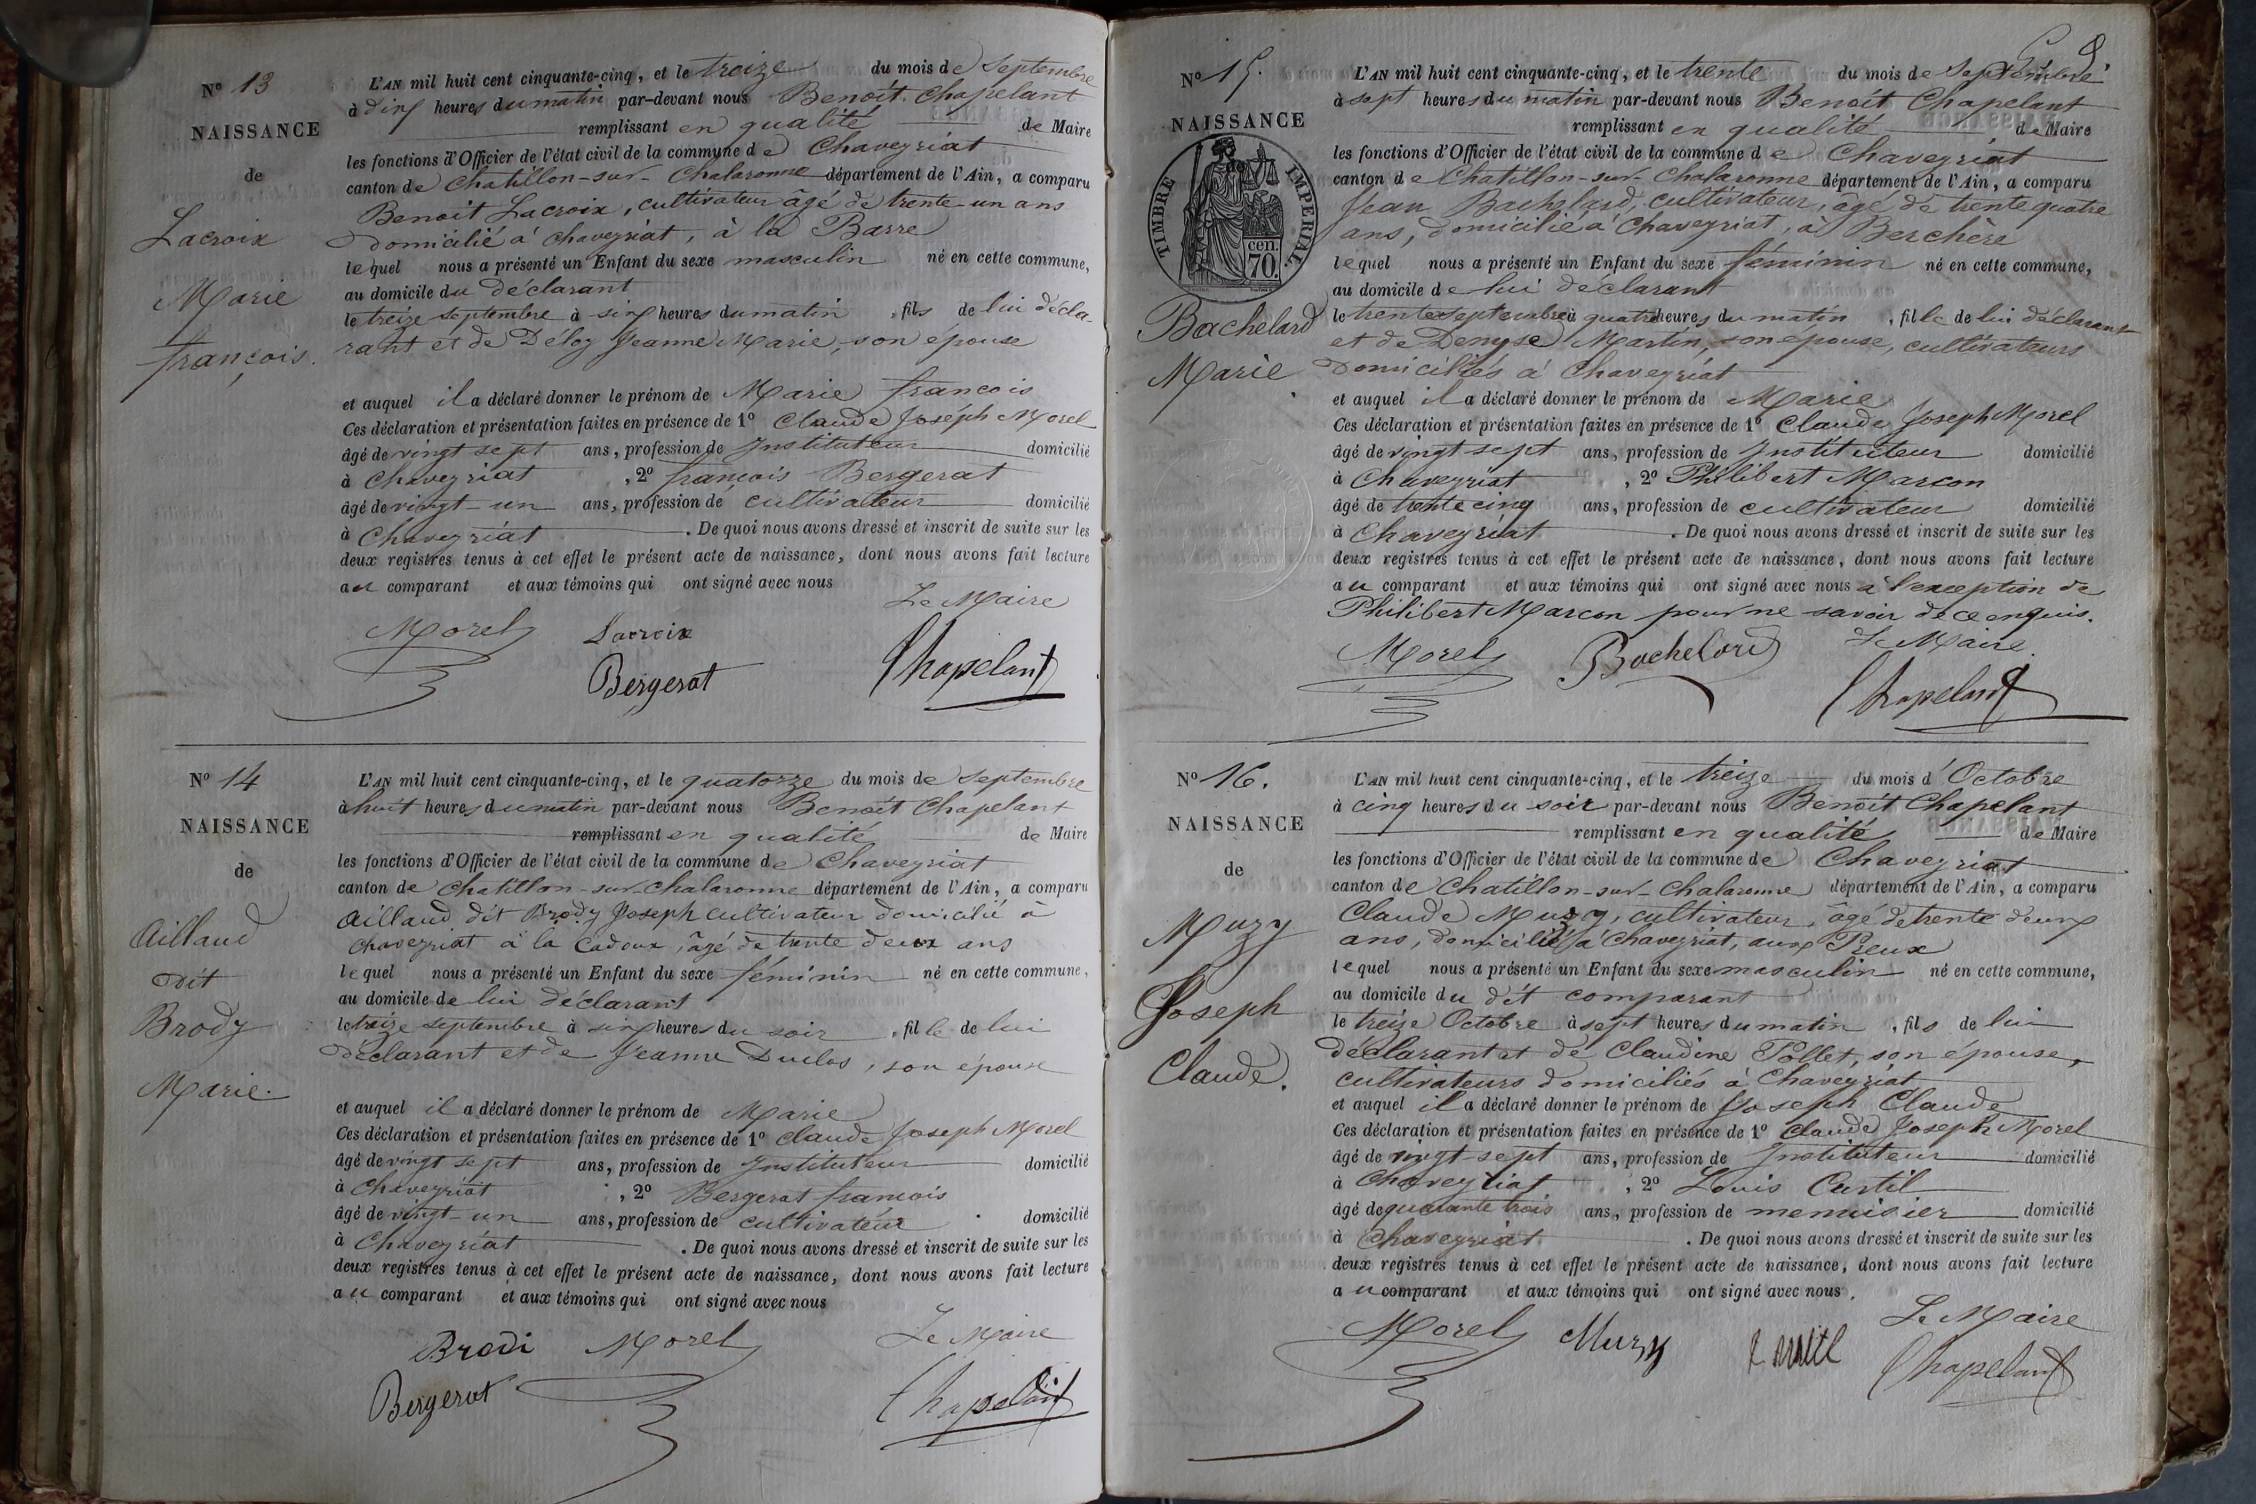 Nº 13
NAISSANCE
de
Lacroix
Marie
françois.
L'AN mil huit cent cinquante-cinq, et le treize du mois de Septembre
à dix heures du matin par-devant nous Benoit Chapelant
remplissant en qualité de Maire
les fonctions d'Officier de l'état civil de la commune de Chaveyriat
canton de Chatillon-sur-Chalaronne département de l'Ain, a comparu
Benoit Lacroix, cultivateur âgé de trente-un ans
domicilié à Chaveyriat, à la Barre
lequel nous a présenté un Enfant du sexe masculin né en cette commune,
au domicile du déclarant
le treize septembre à six heures du matin, fils de lui décla-
rant et de Déloy Jeanne Marie, son épouse
et auquel il a déclaré donner le prénom de Marie françois
Ces déclaration et présentation faites en présence de 1º Claude Joseph Morel
âgé de vingt sept ans, profession de Instituteur domicilié
à Chaveyriat, 2º françois Bergerat
âgé de vingt-un ans, profession de cultivateur domicilié
à Chaveyriat. De quoi nous avons dressé et inscrit de suite sur les
deux registres tenus à cet effet le présent acte de naissance, dont nous avons fait lecture
au comparant et aux témoins qui ont signé avec nous
Le Maire
Morel Lacroix
Bergerat Chapelant
Nº 14
NAISSANCE
de
Aillaud
dit
Brody
Marie.
L'AN mil huit cent cinquante-cinq, et le quatorze du mois de Septembre
à huit heures du matin par-devant nous Benoit Chapelant
remplissant en qualité de Maire
les fonctions d'Officier de l'état civil de la commune de Chaveyriat
canton de Chatillon-sur-Chalaronne département de l'Ain, a comparu
Aillaud dit Brody Joseph cultivateur domicilié à
Chaveyriat à la Cadoux, âgé de trente deux ans
lequel nous a présenté un Enfant du sexe féminin né en cette commune,
au domicile de lui déclarant
le treize septembre à six heures du soir, fille de lui
déclarant et de Jeanne Duclos, son épouse
et auquel il a déclaré donner le prénom de Marie
Ces déclaration et présentation faites en présence de 1º Claude Joseph Morel
âgé de vingt sept ans, profession de Instituteur domicilié
à Chaveyriat, 2º Bergerat francois
âgé de vingt-un ans, profession de cultivateur domicilié
à Chaveyriat. De quoi nous avons dressé et inscrit de suite sur les
deux registres tenus à cet effet le présent acte de naissance, dont nous avons fait lecture
au comparant et aux témoins qui ont signé avec nous
Le Maire
Brodi Morel
Bergerat Chapelant
Nº 15.
NAISSANCE
TIMBRE IMPERIAL.
cen.
70.
Bachelard
Marie
L'AN mil huit cent cinquante-cinq, et le trente du mois de Septembre
à sept heures du matin par-devant nous Benoit Chapelant
remplissant en qualité de Maire
les fonctions d'Officier de l'état civil de la commune de Chaveyriat
canton de Chatillon-sur-Chalaronne département de l'Ain, a comparu
Jean Bachelard, cultivateur, âgé de trente quatre
ans, domicilié à Chaveyriat, à Berchère
lequel nous a présenté un Enfant du sexe féminin né en cette commune,
au domicile de lui déclarant
le trente septembre à quatre heures du matin, fille de lui déclarant
et de Denyse Martin, son épouse, cultivateurs
domiciliés à Chaveyriat
et auquel il a déclaré donner le prénom de Marie
Ces déclaration et présentation faites en présence de 1º Claude Joseph Morel
âgé de vingt sept ans, profession de Instituteur domicilié
à Chaveyriat, 2º Philibert Marcon
âgé de trente cinq ans, profession de cultivateur domicilié
à Chaveyriat. De quoi nous avons dressé et inscrit de suite sur les
deux registres tenus à cet effet le présent acte de naissance, dont nous avons fait lecture
au comparant et aux témoins qui ont signé avec nous a l'exception de
Philibert Marcon pour ne savoir de ce enquis.
Le Maire.
Morel Bachelard
Chapelant
Nº 16.
NAISSANCE
de
Muzy
Joseph
Claude.
L'AN mil huit cent cinquante-cinq, et le treize du mois d'Octobre
à cinq heures du soir par-devant nous Benoit Chapelant
remplissant en qualité de Maire
les fonctions d'Officier de l'état civil de la commune de Chaveyriat
canton de Chatillon-sur-Chalaronne département de l'Ain, a comparu
Claude Muzy, cultivateur, âgé de trente deux
ans, domicilié à Chaveyriat, aux Peux
lequel nous a présenté un Enfant du sexe masculin né en cette commune,
au domicile du dit comparant
le treize Octobre à sept heures du matin, fils de lui
déclarant et de Claudine Pollet, son épouse,
cultivateurs domiciliés à Chaveyriat
et auquel il a déclaré donner le prénom de Joseph Claude
Ces déclaration et présentation faites en présence de 1º Claude Joseph Morel
âgé de vingt-sept ans, profession de Instituteur domicilié
à Chaveyriat, 2º Louis Curtil
âgé de quarante trois ans, profession de menuisier domicilié
à Chaveyriat. De quoi nous avons dressé et inscrit de suite sur les
deux registres tenus à cet effet le présent acte de naissance, dont nous avons fait lecture
au comparant et aux témoins qui ont signé avec nous.
Le Maire
Morel Muzy
Chapelant